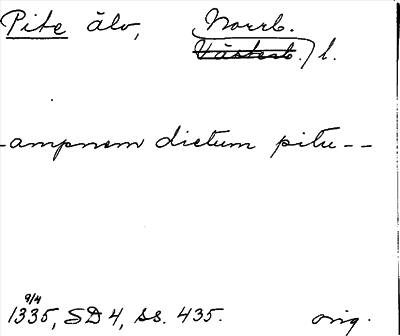 Pite älv, Norrb.
Västerb. l.
-ampnem dictum pitu--
9/4
1335, SD 4, ss. 435. orig.